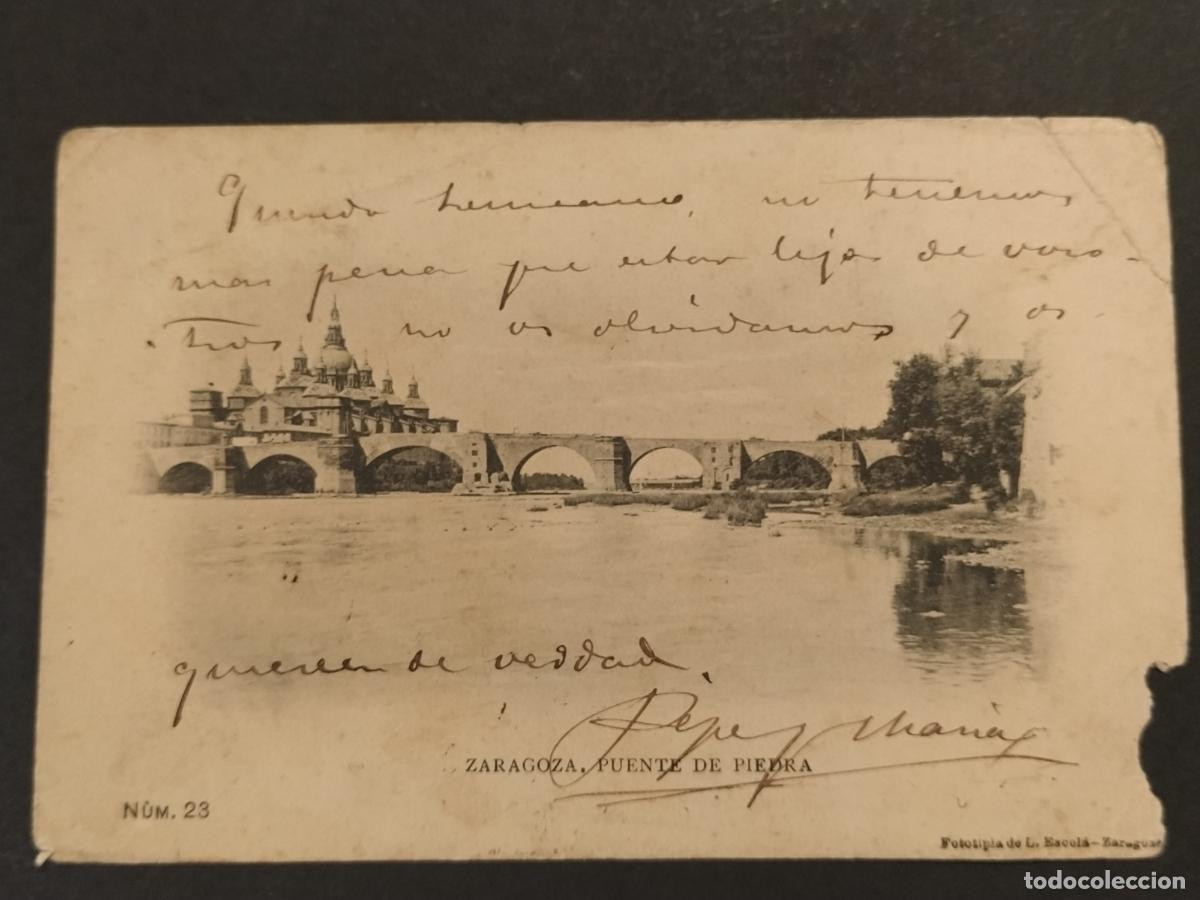 Querido hermano, no tenemos
mas pena que estar lejos de voso-
tros no os olvidamos y os
quieren de verdad.
Pepe y Maria
ZARAGOZA, PUENTE DE PIEDRA
NÚM. 23
Fototipia de L. Escolá-Zaragoza
todocoleccion